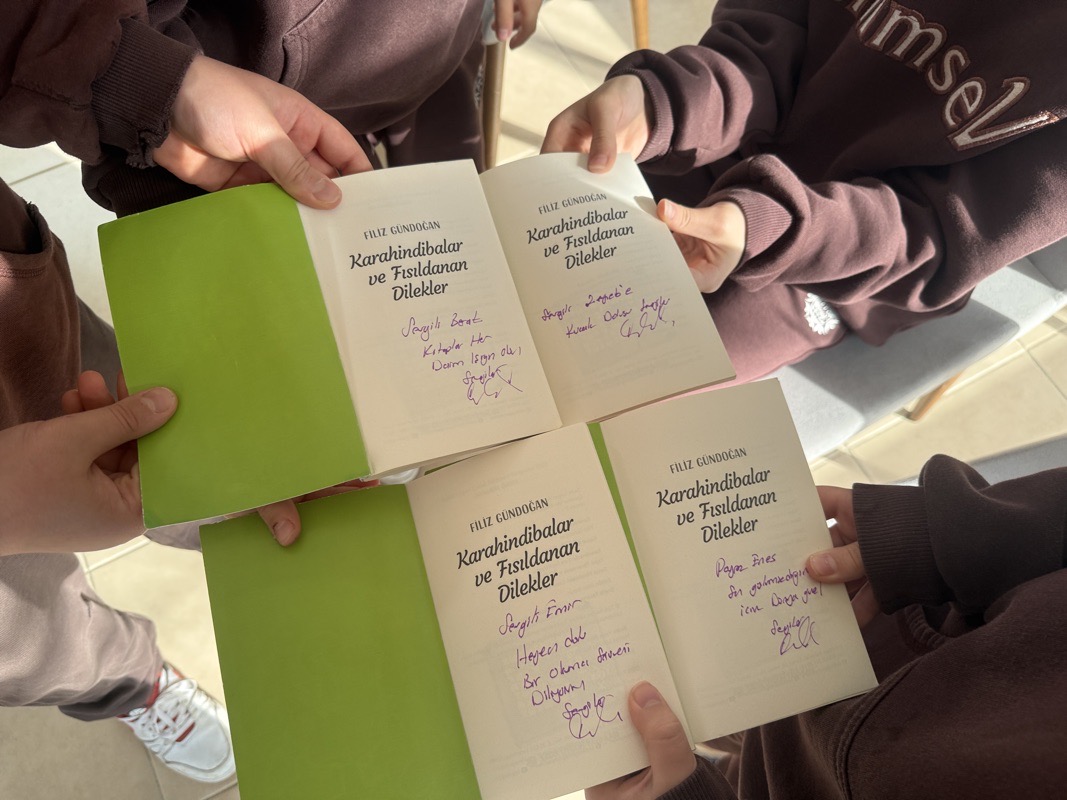 FİLİZ GÜNDOĞAN
Karahindibalar
ve Fısıldanan
Dilekler
Sevgili Berat
Kitaplar Her
Daim
Sevgiler
FİLİZ GÜNDOĞAN
Karahindibalar
ve Fısıldanan
Dilekler
Sevgili Zeyneb'e
Dolu
FİLİZ GÜNDOĞAN
Karahindibalar
ve Fısıldanan
Dilekler
Sevgili Emir
Heyecan dolu
Bir okuma
Diliyorum
Sevgiler
FİLİZ GÜNDOĞAN
Karahindibalar
ve Fısıldanan
Dilekler
Enes
Sen gülümsediğin
için Dünya güzel
Sevgiler